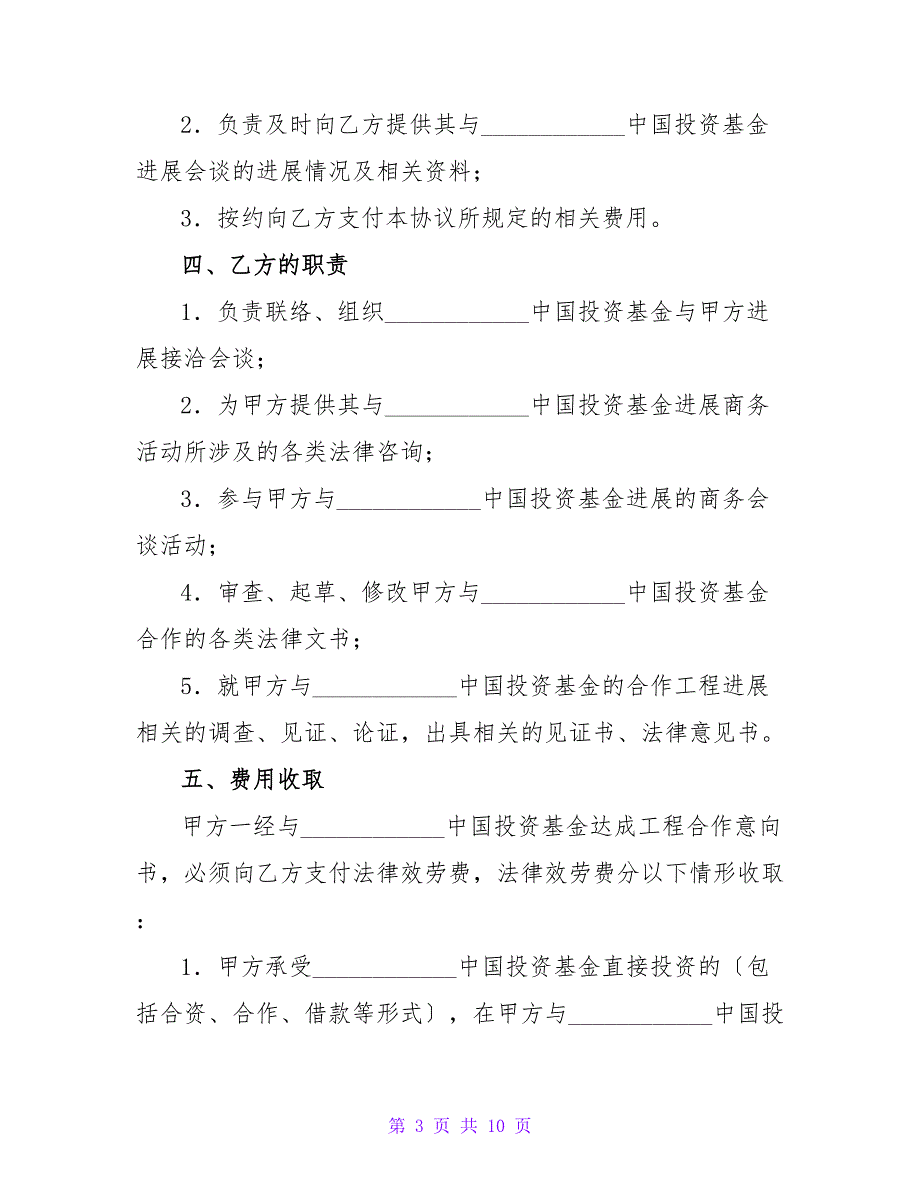 2．负责及时向乙方提供其与____________中国投资基金
进展会谈的进展情况及相关资料；
3．按约向乙方支付本协议所规定的相关费用。
四、乙方的职责
1．负责联络、组织____________中国投资基金与甲方进
展接洽会谈；
2．为甲方提供其与____________中国投资基金进展商务
活动所涉及的各类法律咨询；
3．参与甲方与____________中国投资基金进展的商务会
谈活动；
4．审查、起草、修改甲方与____________中国投资基金
合作的各类法律文书；
5．就甲方与____________中国投资基金的合作工程进展
相关的调查、见证、论证，出具相关的见证书、法律意见书。
五、费用收取
甲方一经与____________中国投资基金达成工程合作意向
书，必须向乙方支付法律效劳费，法律效劳费分以下情形收取
：
1．甲方承受____________中国投资基金直接投资的〔包
括合资、合作、借款等形式〕，在甲方与____________中国投
第 3 页 共 10 页